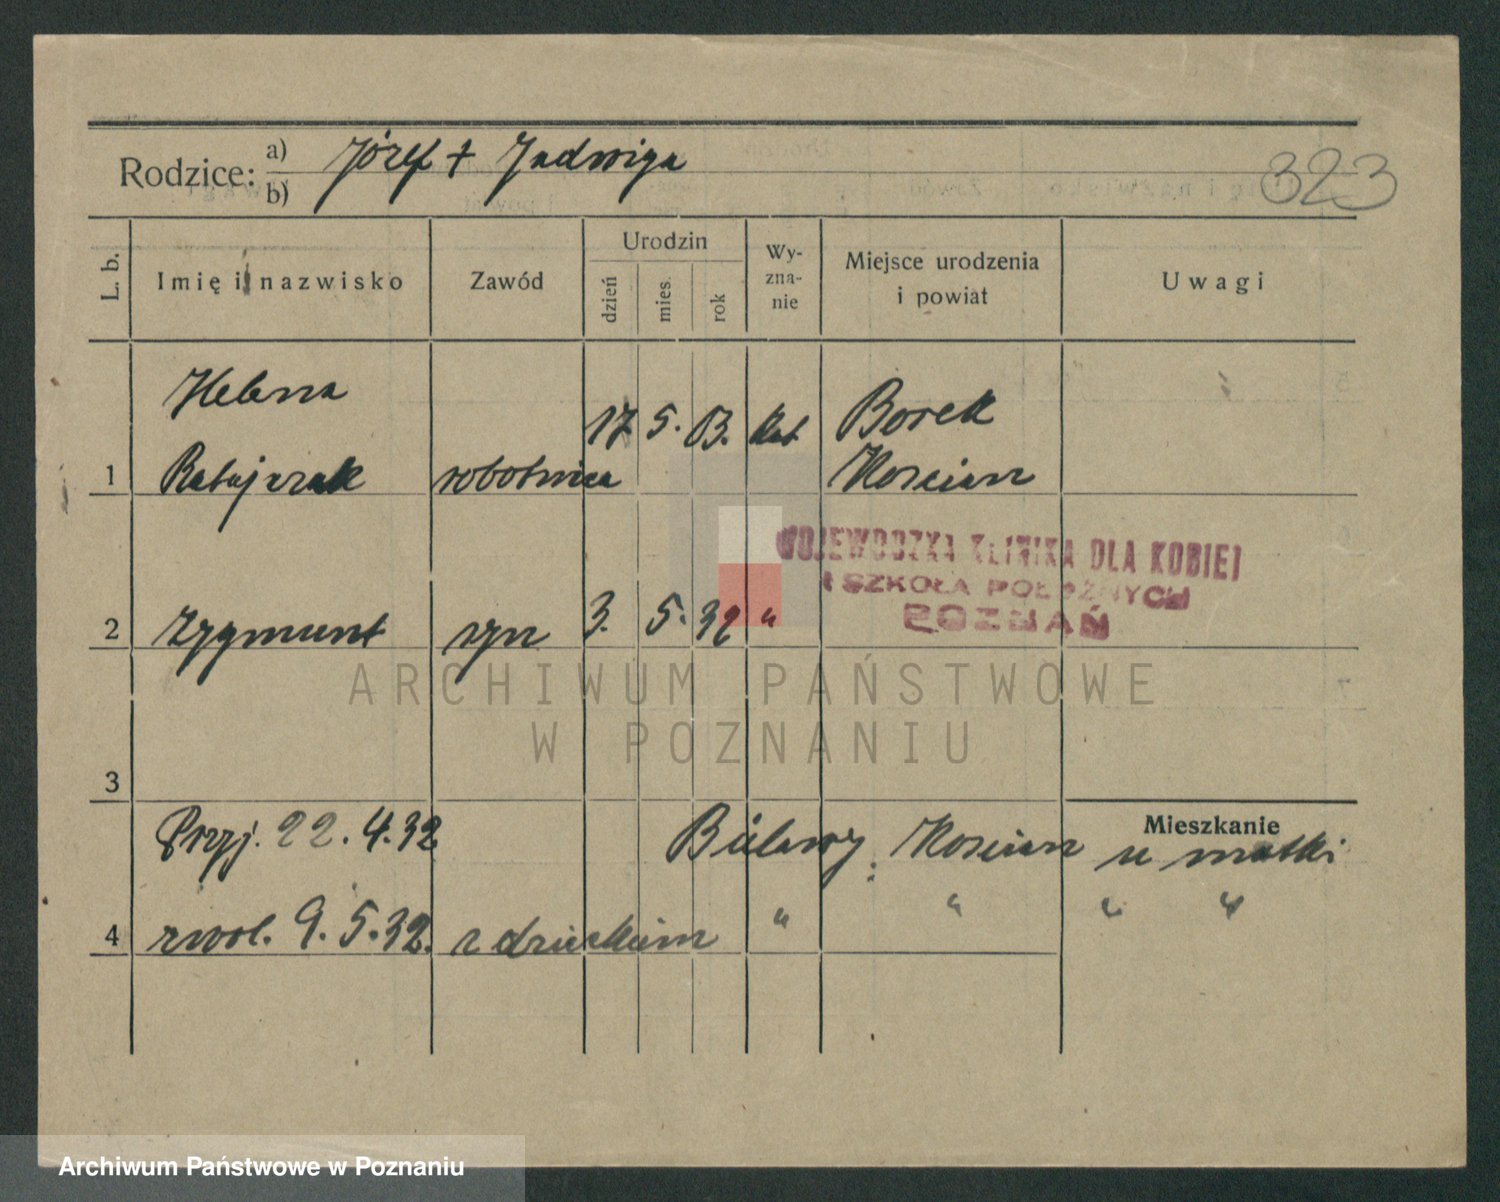 Rodzice: a) Józef + Jadwiga
b)
323
L. b.
Imię i nazwisko
Zawód
Urodzin
dzień
mies.
rok
Wy-
zna-
nie
Miejsce urodzenia
i powiat
Uwagi
Helena
17 5. 03. kat Borek
1 Ratajczak robotnica Kościan
WOJEWÓDZKA KLINIKA DLA KOBIET
I SZKOŁA POŁOŻNYCH
POZNAŃ
2 Zygmunt syn 3. 5. 32 "
ARCHIWUM PAŃSTWOWE
W POZNANIU
3
Mieszkanie
Przyj. 22.4.32 Bielawy, Kościan u matki
4 zwol. 9.5.32. z dzieckiem " " " "
Archiwum Państwowe w Poznaniu